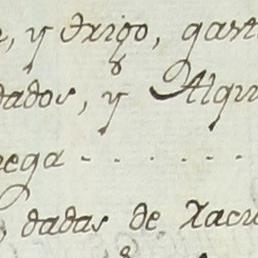 , y trigo, gast
dados, y Alqui
rega - - - - - -
, dadas de Xacu